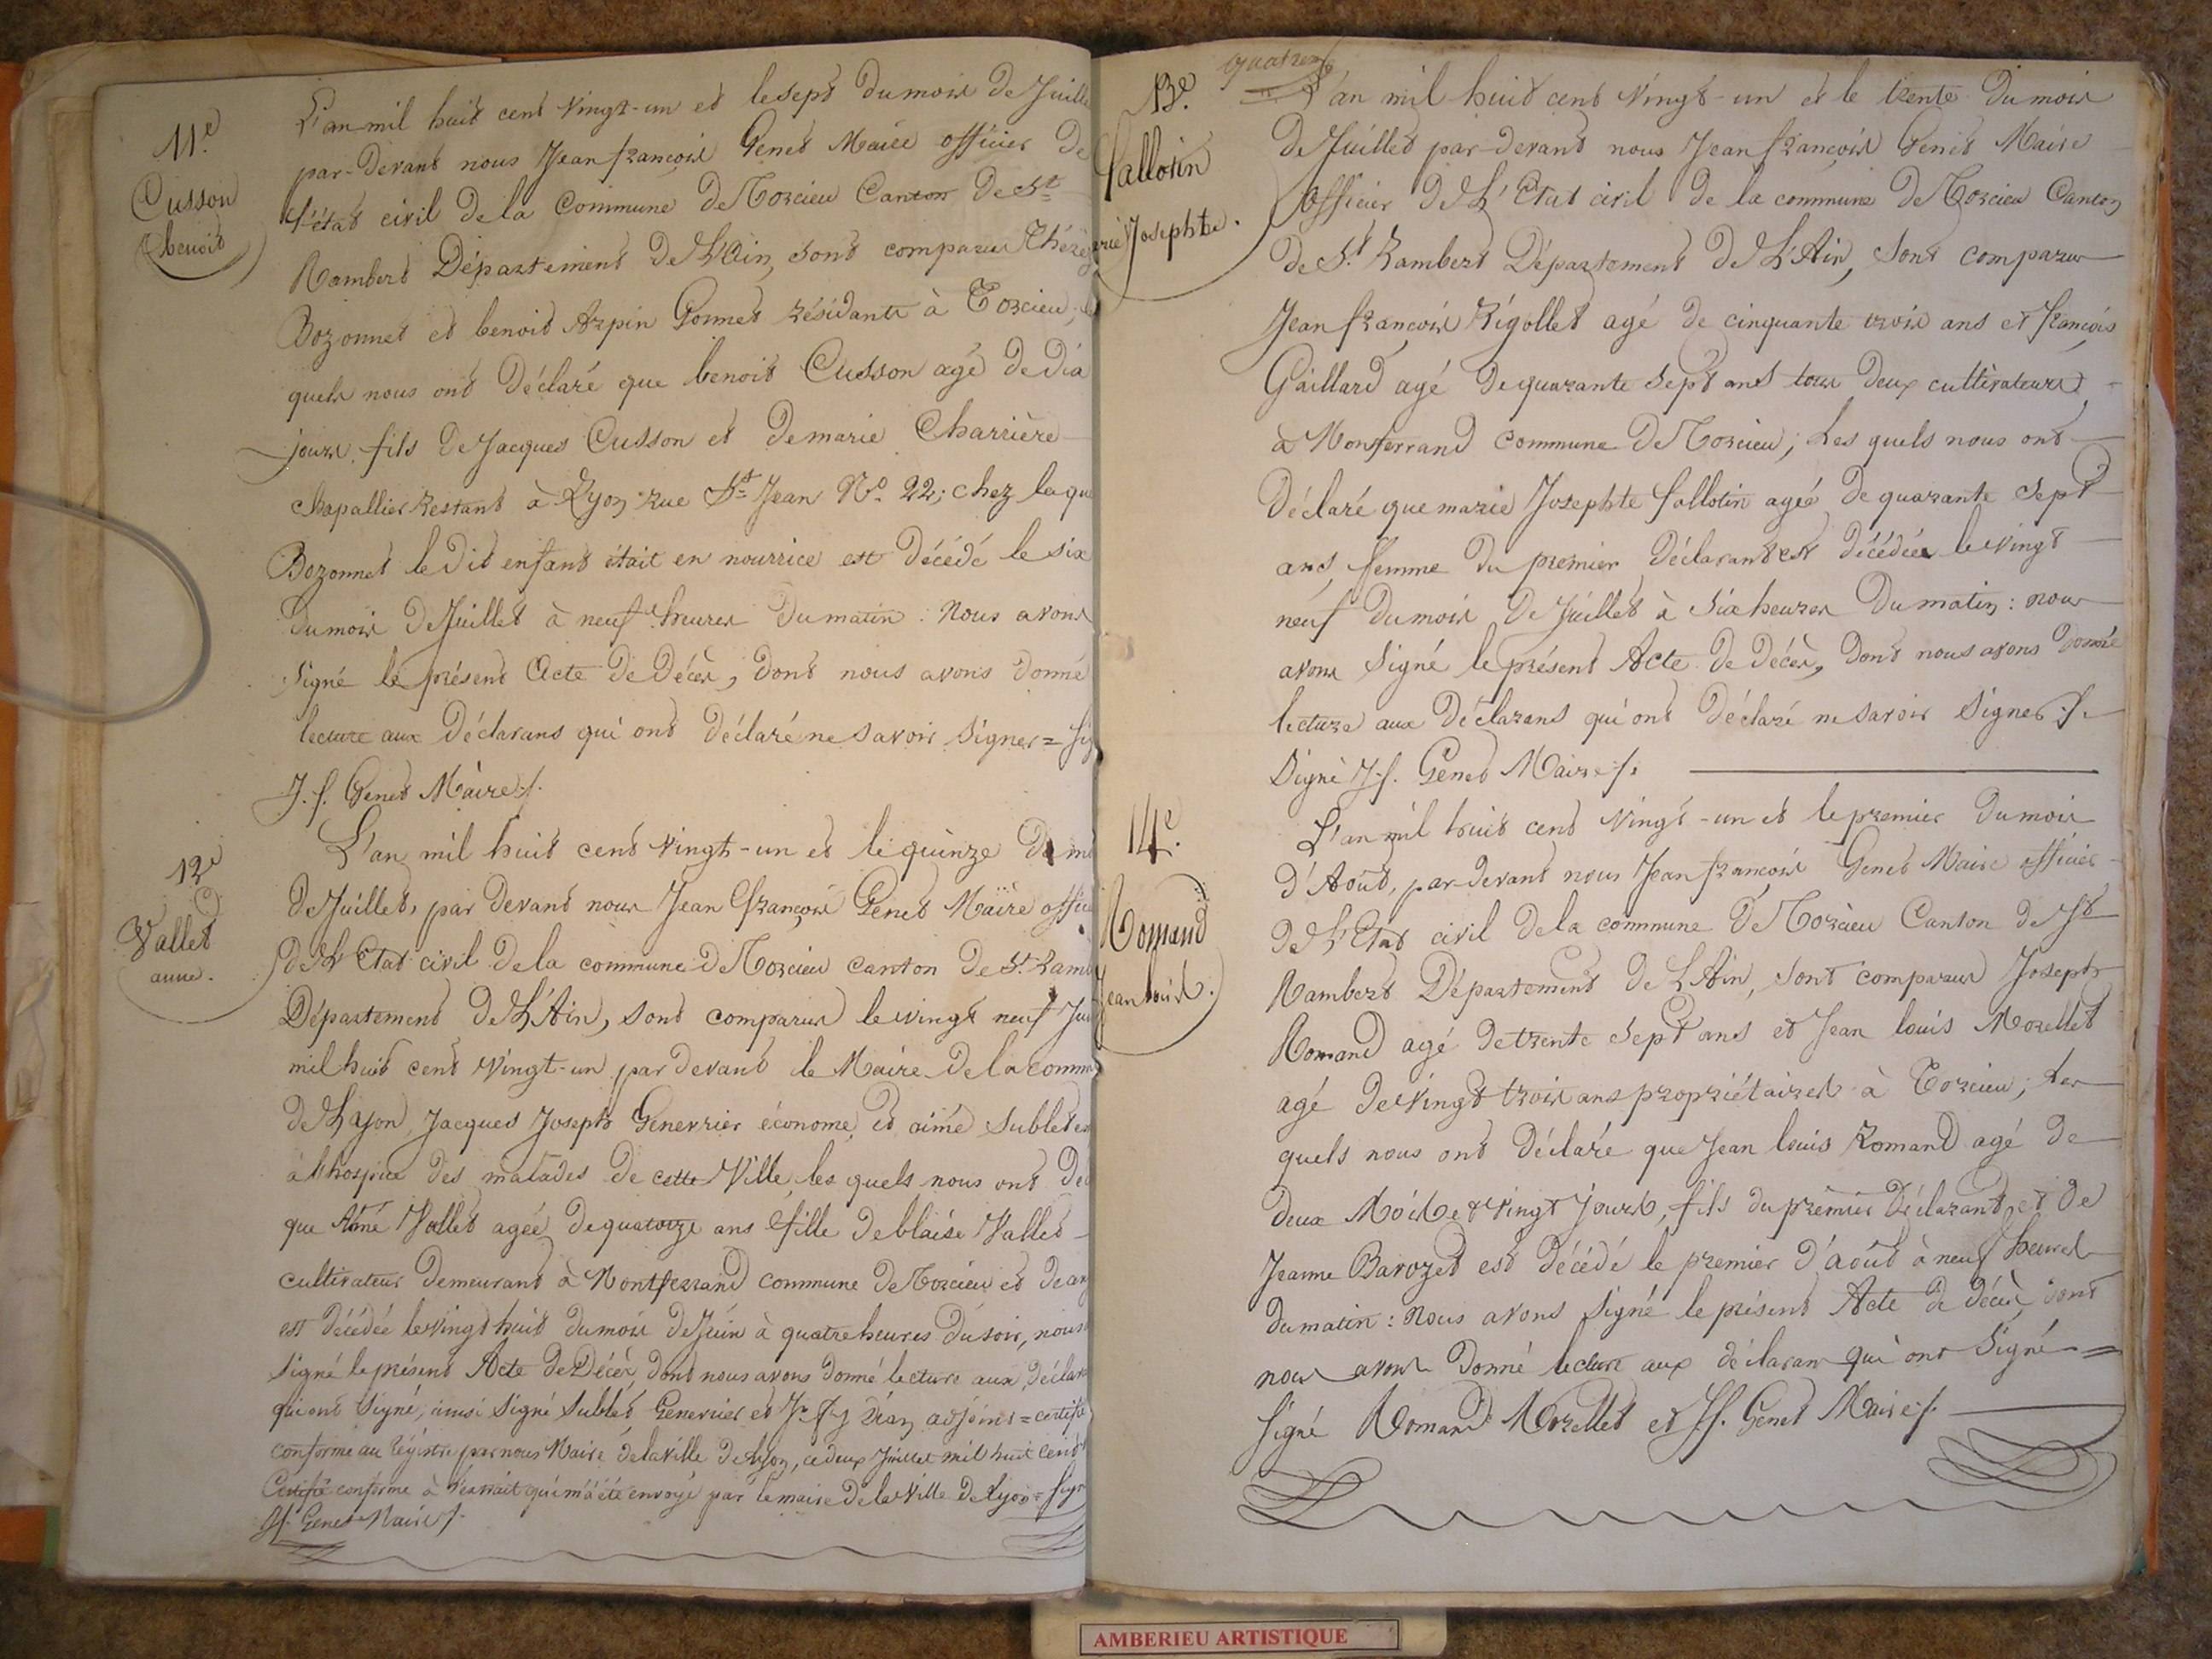 11e
Cusson
benoit
L'an mil huit cent vingt-un et le sept du mois de Juille
par-devant nous Jean françois Genet Maire officier de
l'état civil de la Commune de Torcieu Canton de St
Rambert Département de L'Ain, sont comparus Thérèz
Bozonnet et benoit Arpin Gonnet résidants à Torcieu,
quels nous ont déclaré que benoit Cusson agé de dix
jours, fils de Jacques Cusson et de marie Charrière
Chapallier restant à Lyon rue St Jean No. 22; chez laque
Bozonnet le dit enfant était en nourrice est décédé le six
du mois de Juillet à neuf heures du matin: Nous avons
signé le présent Acte de Décès, dont nous avons donné
lecture aux déclarans qui ont déclaré ne savoir signer = sig
J. f. Genet Maire /.
12e
Vallet
anne.
L'an mil huit cent vingt-un et le quinze du m
de Juillet, par devant nous Jean françois Genet Maire offic
de L'Etat civil de la commune de Torcieu canton de St. Ramb
Département de L'Ain, sont comparus le vingt neuf Jui
mil huit cent vingt-un par devant le Maire de la comm
de Lyon, Jacques Joseph Genevrier économe et aimé Sublet
à L'hospice des malades de cette Ville, les quels nous ont dé
que Vallet agée de quatorze ans fille de blaise Vallet
cultivateur demeurant à Montferrand commune de Torcieu et de
est décédée le vingt huit du mois de Juin à quatre heures du soir, nous
signé le présent Acte de Décès, dont nous avons donné lecture aux déclar
qui ont signé, ainsi signé Sublet, Genevrier et adjoint = certifié
conforme au régistre par nous Maire de la ville de Lyon, ce deux Juillet mil huit cent
Certifié conforme à l'extrait qui m'a été envoyé par le maire de la Ville de Lyon = sign
Jf. Genet Maire /.
quatre
13e.
fallotin
rie Josephte.
L'an mil huit cent vingt-un et le trente du mois
de Juillet par-devant nous Jean françois Genet Maire
Officier de L'Etat civil de la commune de Torcieu Canton
de St. Rambert Département de L'Ain, sont comparus
Jean françois Rigollet agé de cinquante trois ans et françois
Gaillard agé de quarante sept ans tous deux cultivateurs
à Monferrand commune de Torcieu; Les quels nous ont
déclaré que marie Josephte fallotin agée de quarante sept
ans, femme du premier déclarant est décédée le vingt
neuf du mois de Juillet à six heures du matin: nous
avons signé le présent Acte de décès, dont nous avons donné
lecture aux déclarans qui ont déclaré ne savoir signer /.
Signé J. f. Genet Maire /.
14e.
Romand
Jean louis.
L'an mil huit cent vingt-un et le premier du mois
d'Août, par-devant nous Jean françois Genet Maire officier
de L'Etat civil de la commune de Torcieu Canton de St
Rambert Département de L'Ain, sont comparus Joseph
Romand agé de trente sept ans et Jean louis Morellet
agé de vingt trois ans propriétaires à Torcieu; Les
quels nous ont déclaré que Jean louis Romand agé de
deux Mois et vingt jours, fils du premier déclarant, et de
Jeanne Barozet est décédé le premier d'août à neuf heures
du matin: Nous avons signé le présent Acte de décès, dont
nous avons donné lecture aux déclarans qui ont signé =
signé Romand Morellet et Jf. Genet Maire /.
AMBERIEU ARTISTIQUE